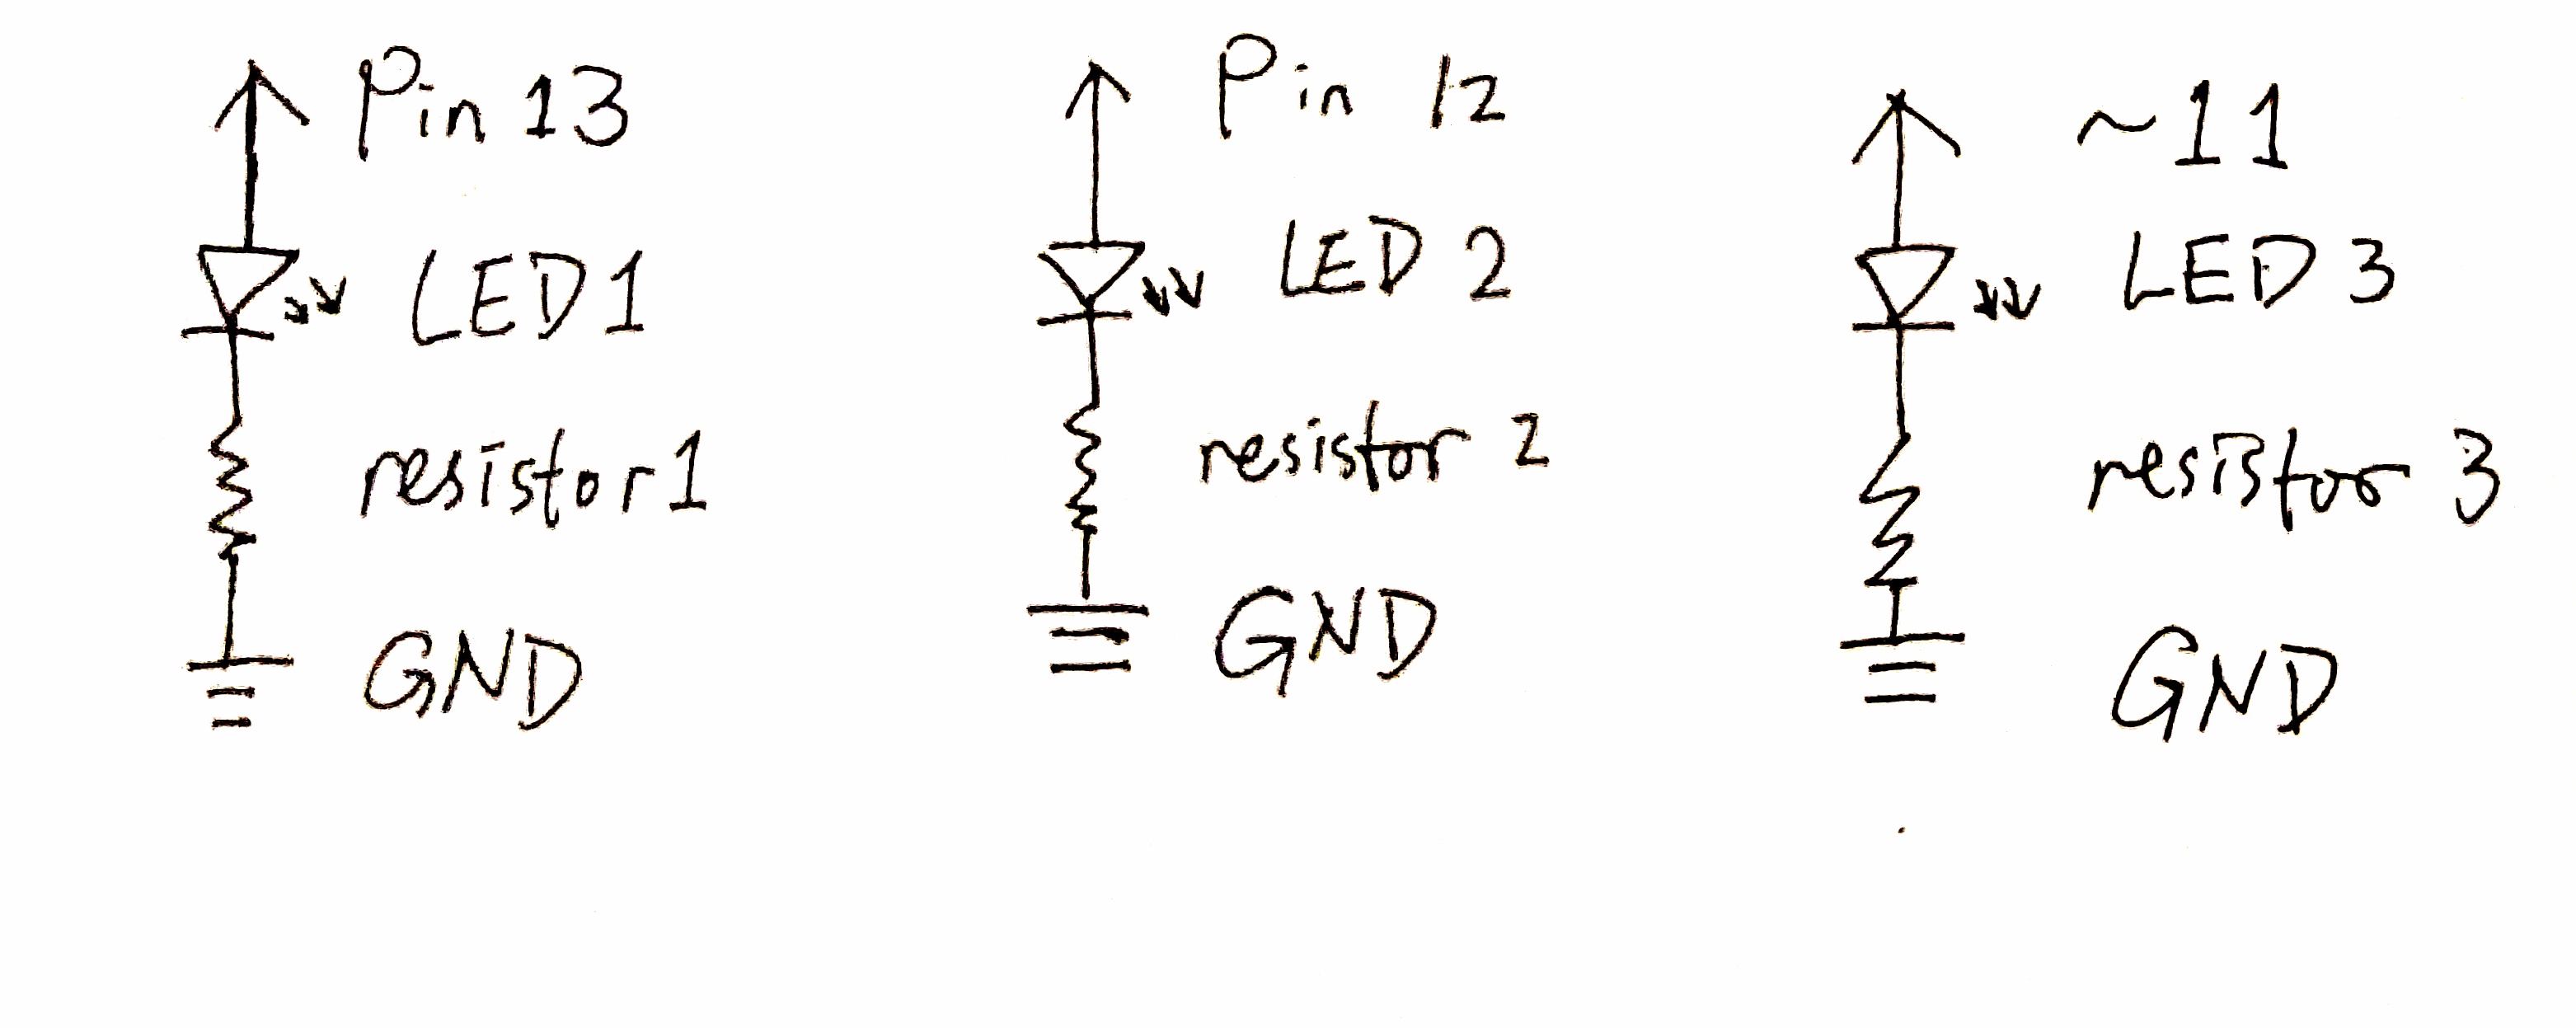 Pin 13
LED 1
resistor 1
GND
Pin 12
LED 2
resistor 2
GND
~11
LED 3
resistor 3
GND